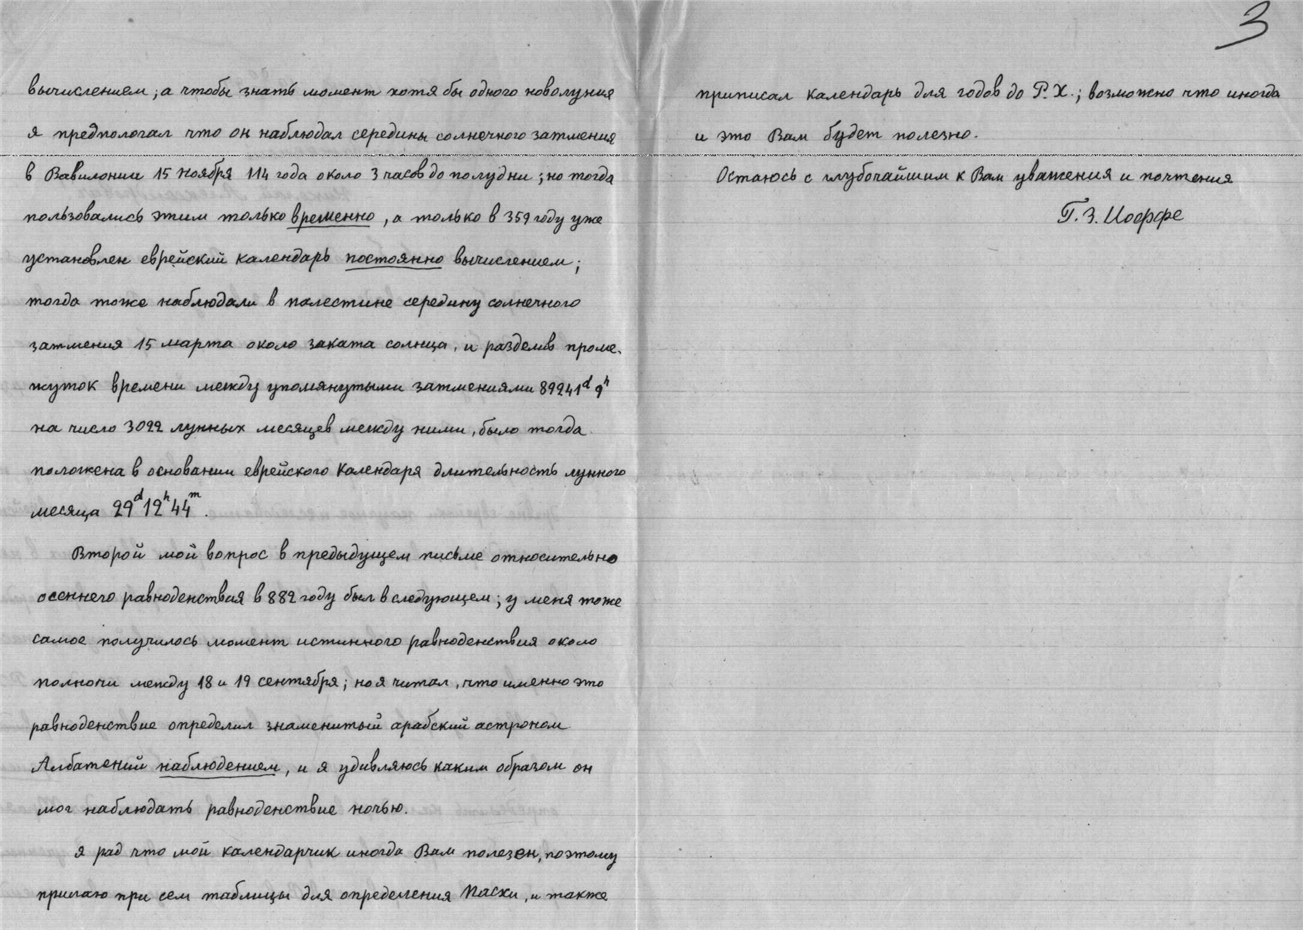 вычислением; а чтобы знать момент хотя бы одного новолуния
я предпологал что он наблюдал середины солнечного затмения
в Вавилонии 15 ноября 114 года около 3 часов до полудни; но тогда
пользовались этим только временно, а только в 359 году уже
установлен еврейский календарь постоянно вычислением;
тогда тоже наблюдали в палестине середину солнечного
затмения 15 марта около заката солнца, и разделив проме-
жуток времени между упомянутыми затмениями 89241d 9h
на число 3022 лунных месяцев между ними, было тогда
положена в основании еврейского календаря длительность лунного
месяца 29d 12h 44m.
Второй мой вопрос в предыдущем письме относительно
осеннего равноденствая в 882 году был в следующем; у меня тоже
самое получилось момент истинного равноденствия около
полночи между 18 и 19 сентября; но я читал, что именно это
равноденствие определил знаменитый арабский астроном
Албатений наблюдением, и я удивляюсь каким образом он
мог наблюдать равноденствие ночью.
Я рад что мой календарчик иногда Вам полезен, поэтому
прилаю при сем таблицы для определения Пасхи, и также
3
приписал календарь для годов до Р.Х.; возможно что иногда
и это Вам будет полезно.
Остаюсь с глубочайшим к Вам уважения и почтения
Г. З. Иоффе